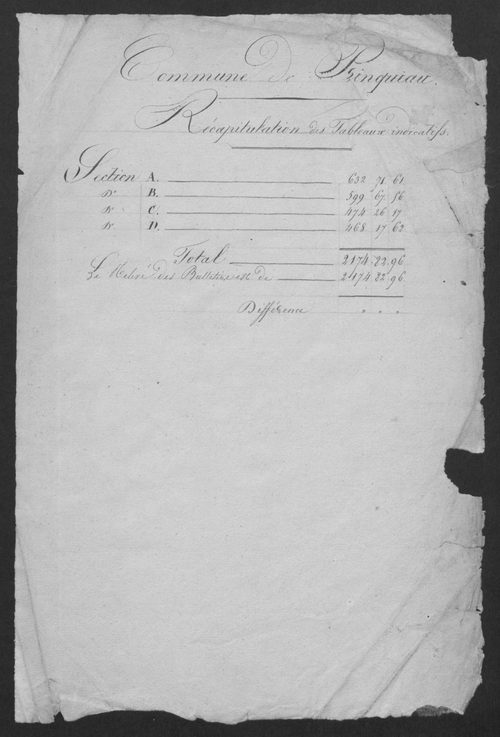 Commune De Prinquiau.
Récapitulation des Tableaux indicatifs.
Section A. 632 71 61
Do B. 599 67 56
Do C. 474 26 17
Do D. 468 17 62
Total 2174. 82. 96
Le Relevé des Bulletins est de 2174. 82. 96
Différence " " "